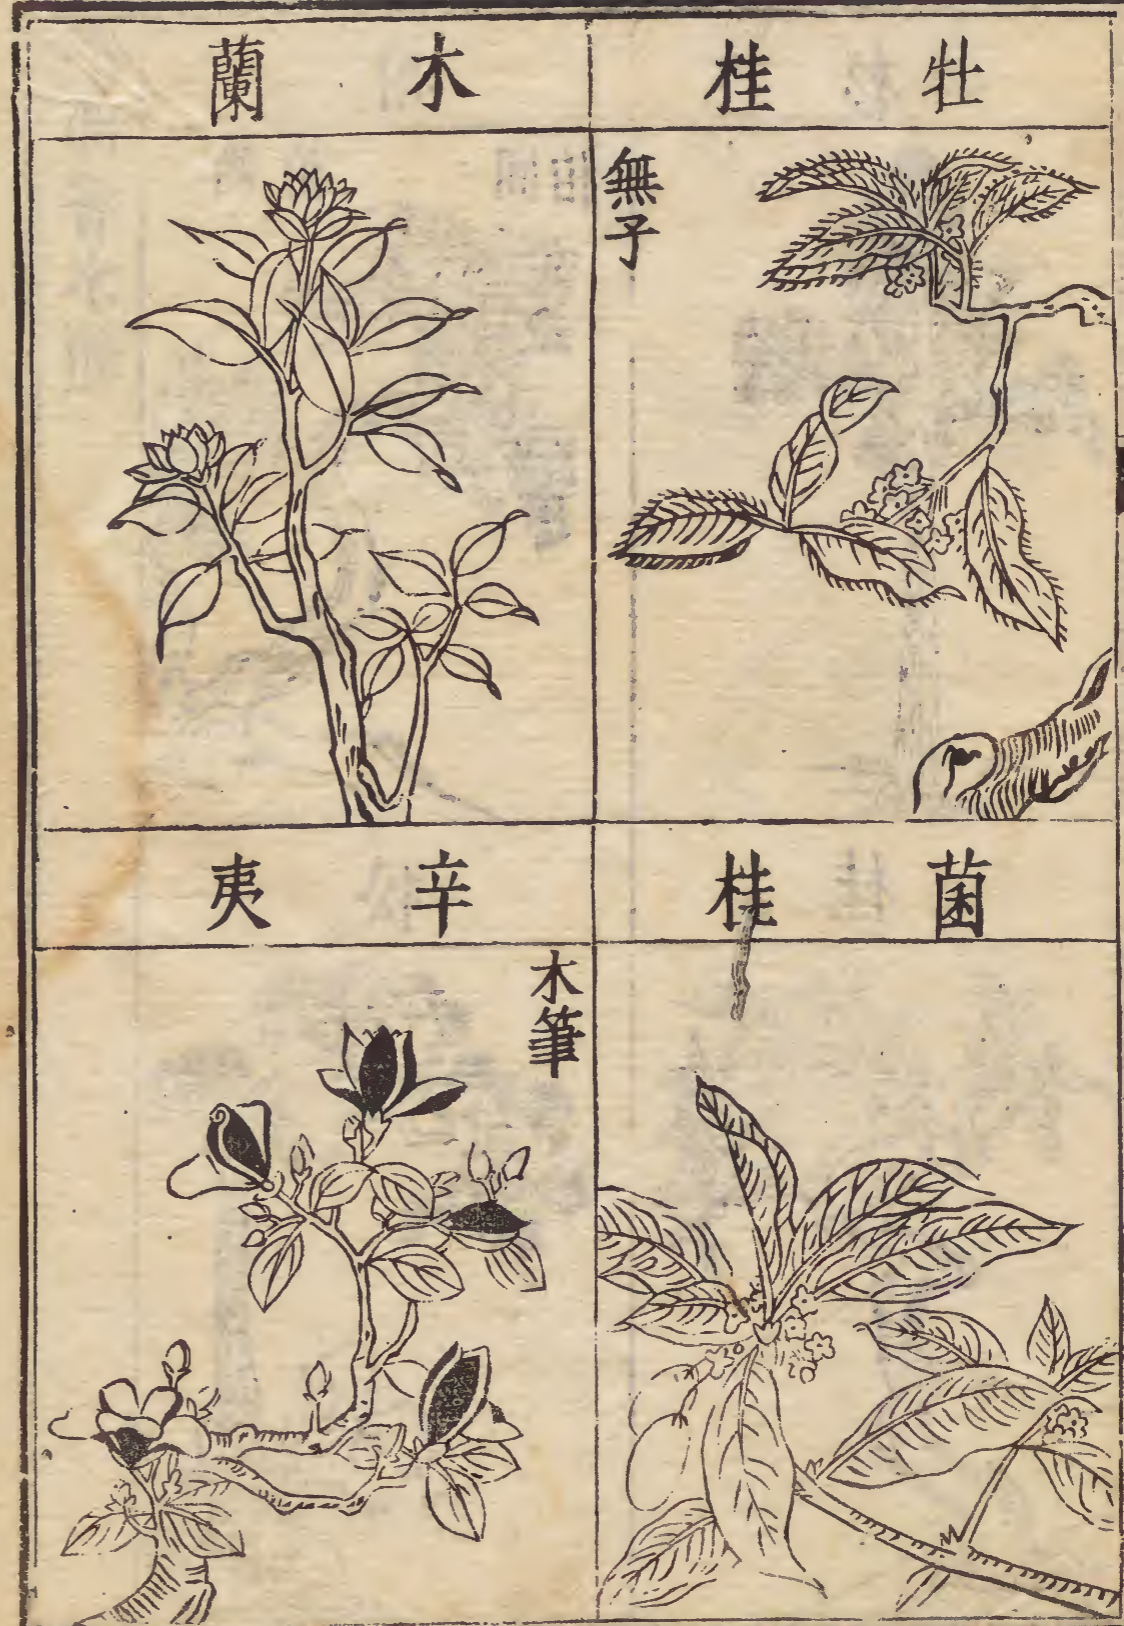 牡桂
無子
木蘭
菌桂
辛夷
木筆